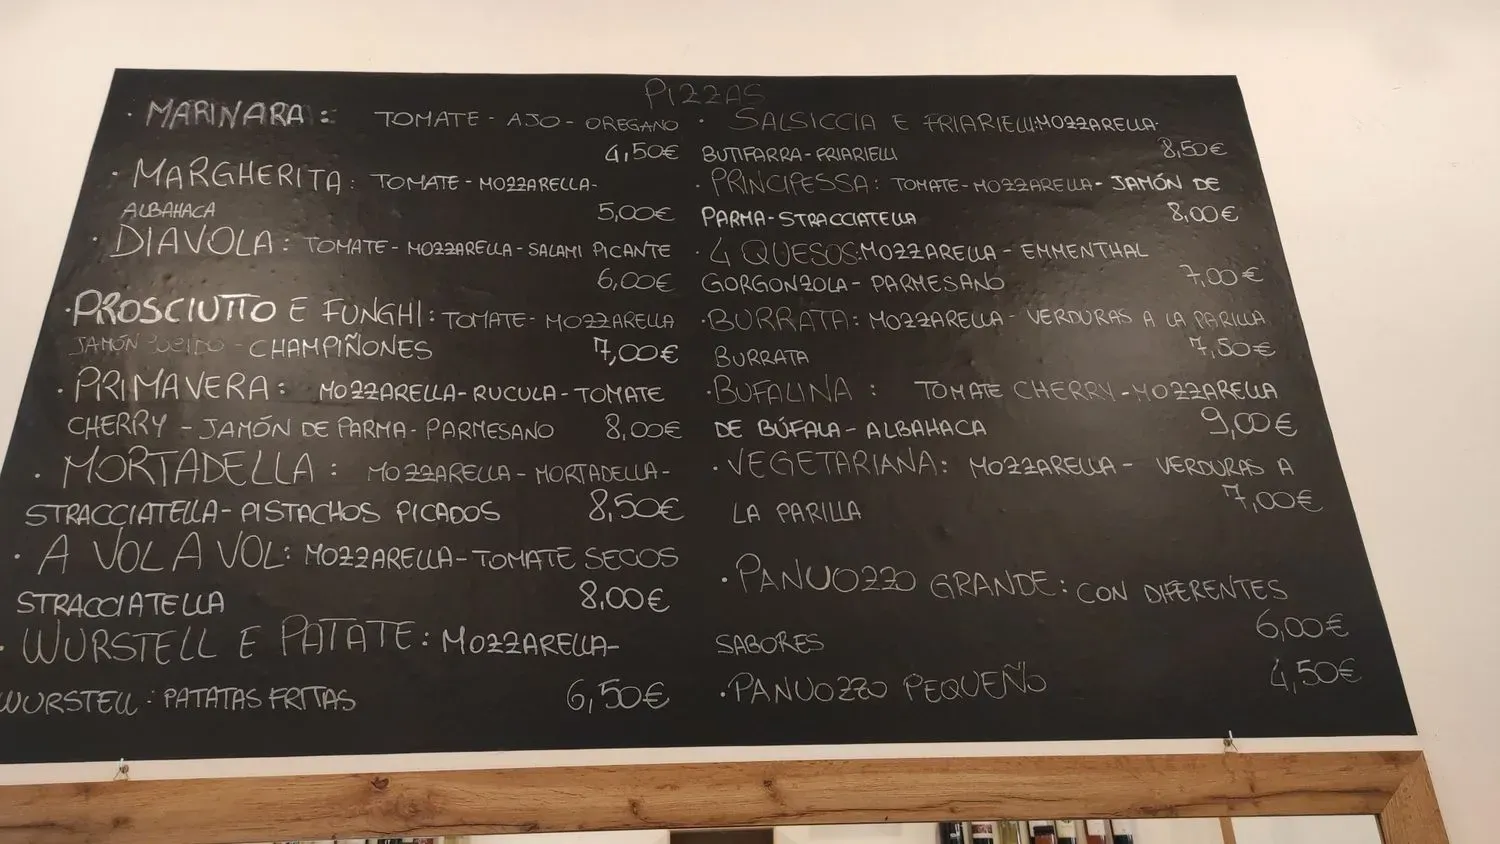 PIZZAS
· MARINARA : TOMATE - AJO - OREGANO
4,50€
· MARGHERITA : TOMATE - MOZZARELLA -
ALBAHACA 5,00€
· DIAVOLA : TOMATE - MOZZARELLA - SALAMI PICANTE
6,00€
· PROSCIUTTO E FUNGHI : TOMATE - MOZZARELLA
JAMÓN - CHAMPIÑONES 7,00€
· PRIMAVERA : MOZZARELLA - RUCULA - TOMATE
CHERRY - JAMÓN DE PARMA - PARMESANO 8,00€
· MORTADELLA : MOZZARELLA - MORTADELLA -
STRACCIATELLA - PISTACHOS PICADOS 8,50€
· A VOL A VOL : MOZZARELLA - TOMATE SECOS
STRACCIATELLA 8,00€
· WURSTELL E PATATE : MOZZARELLA -
WURSTELL : PATATAS FRITAS 6,50€
· SALSICCIA E FRIARIELLI : MOZZARELLA -
BUTIFARRA - FRIARIELLI 8,50€
· PRINCIPESSA : TOMATE - MOZZARELLA - JAMÓN DE
PARMA - STRACCIATELLA 8,00€
· 4 QUESOS : MOZZARELLA - EMMENTHAL
GORGONZOLA - PARMESANO 7,00€
· BURRATA : MOZZARELLA - VERDURAS A LA PARILLA
BURRATA 7,50€
· BUFALINA : TOMATE CHERRY - MOZZARELLA
DE BÚFALA - ALBAHACA 9,00€
· VEGETARIANA : MOZZARELLA - VERDURAS A
LA PARILLA 7,00€
· PANUOZZO GRANDE : CON DIFERENTES
SABORES 6,00€
· PANUOZZO PEQUEÑO 4,50€